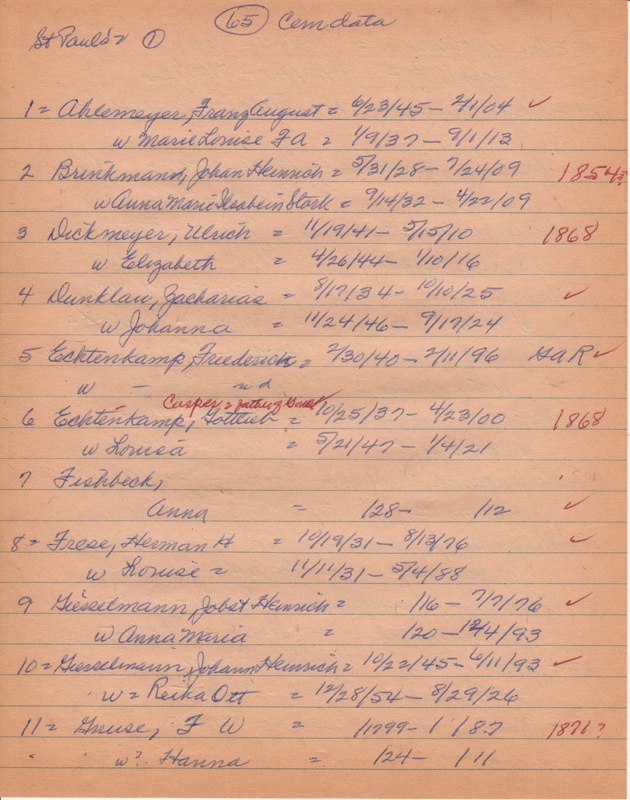 65 Cem data
St Paul's 1
1 = Ahlemeyer, Franz August = 6/23/45 - 2/1/04 ✓
w Marie Louise F A = 1/9/37 - 9/1/13
2 Brinkmann, Johan Heinrich = 5/31/28 - 7/24/09 1854?
w Anna Marie Ilsabein Stork = 9/14/32 - 4/22/09
3 Dickmeyer, Ulrich = 11/19/41 - 5/15/10 1868
w Elizabeth = 4/26/44 - 1/10/16
4 Dunklau, Zacharias = 8/17/34 - 10/10/25 ✓
w Johanna = 11/24/46 - 9/17/24
5 Echtenkamp, Friederich = 2/30/40 - 2/11/96 GAR ✓
w - nd
Casper = father of
6 Echtenkamp, Gottlieb = 10/25/37 - 4/23/00 1868
w Louisa = 5/21/47 - 1/4/21
7 Fishbeck,
Anna = /28 - /12 ✓
8 = Frese, Herman H = 10/19/31 - 8/13/76 ✓
w Louise = 11/11/31 - 5/4/88
9 Giesselmann, Jobst Heinrich = /16 - 7/7/76 ✓
w Anna Maria = /20 - 12/4/93
10 = Giesselmann, Johann Heinrich = 10/22/45 - 6/11/93 ✓
w = Reika Ott = 12/28/54 - 8/29/26
11 = Gnuse, F W = /1799 - 1 18.7 1871?
w? Hanna = /24 - 1 11